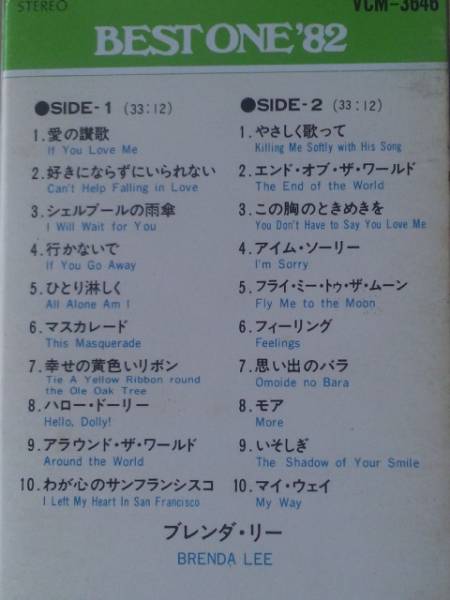 STEREO
VCM-3646
BEST ONE '82
●SIDE-1 (33:12)
1.愛の讃歌
If You Love Me
2.好きにならずにいられない
Can't Help Falling in Love
3.シェルブールの雨傘
I Will Wait for You
4.行かないで
If You Go Away
5.ひとり淋しく
All Alone Am I
6.マスカレード
This Masquerade
7.幸せの黄色いリボン
Tie A Yellow Ribbon round
the Ole Oak Tree
8.ハロー・ドーリー
Hello, Dolly!
9.アラウンド・ザ・ワールド
Around the World
10.わが心のサンフランシスコ
I Left My Heart In San Francisco
●SIDE-2 (33:12)
1.やさしく歌って
Killing Me Softly with His Song
2.エンド・オブ・ザ・ワールド
The End of the World
3.この胸のときめきを
You Don't Have to Say You Love Me
4.アイム・ソーリー
I'm Sorry
5.フライ・ミー・トゥ・ザ・ムーン
Fly Me to the Moon
6.フィーリング
Feelings
7.思い出のバラ
Omoide no Bara
8.モア
More
9.いそしぎ
The Shadow of Your Smile
10.マイ・ウェイ
My Way
ブレンダ・リー
BRENDA LEE